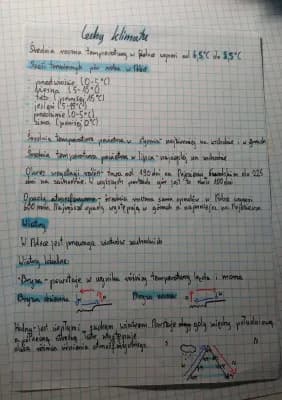 Cechy klimatu
Średnia roczna temperatura w Polsce wynosi od 6,5°C do 8,5°C
Sześć termicznych pór roku w Polsce
- przedwiośnie (0-5°C)
- wiosna (5-15°C)
- lato (powyżej 15°C)
- jesień (5-15°C)
- przedzimie (0-5°C)
- zima (poniżej 0°C)
Średnia temperatura powietrza w styczniu najniższa na wschodzie i w górach
Średnia temperatura powietrza w lipcu najwyższa na zachodzie
Okres wegetacji trwa od 190 dni na Pojezierzu Suwalskim do 225
dni na zachodzie. W wyższych partiach gór jest to 100 dni
Opady atmosferyczne - średnia roczna suma opadów w Polsce wynosi
600 mm. Największe opady występują w górach a najmniejsze na Kujawach
Wiatry
W Polsce jest przewaga wiatrów zachodnich
Wiatry lokalne:
Bryza - powstaje w wyniku różnicy temperatury lądu i morza
Bryza dzienna
Bryza nocna
Halny - jest ciepłym i suchym wiatrem. Powstaje gdy między południową
a północną stroną Tatr występuje
duża różnica ciśnienia atmosferycznego.